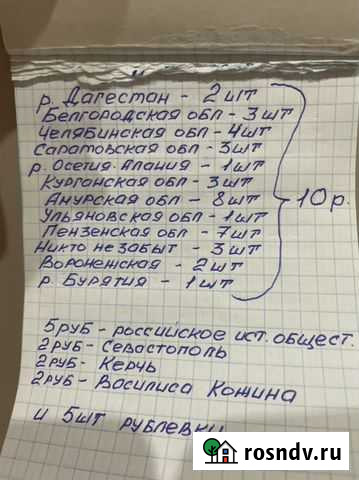 р. Дагестан - 2 шт
Белгородская обл - 3 шт
Челябинская обл - 4шт
Саратовская обл - 3шт
р. Осетия-Алания - 1шт
Курганская обл - 3шт
Амурская обл - 8шт
Ульяновская обл - 1шт
Пензенская обл - 7шт
Никто не забыт - 3шт
Воронежская - 2шт
р. Бурятия - 1шт
10р.
5руб - российское ист. общест.
2руб - Севастополь
2руб - Керчь
2руб - Василиса Кожина
и 5шт рублевки
rosndv.ru